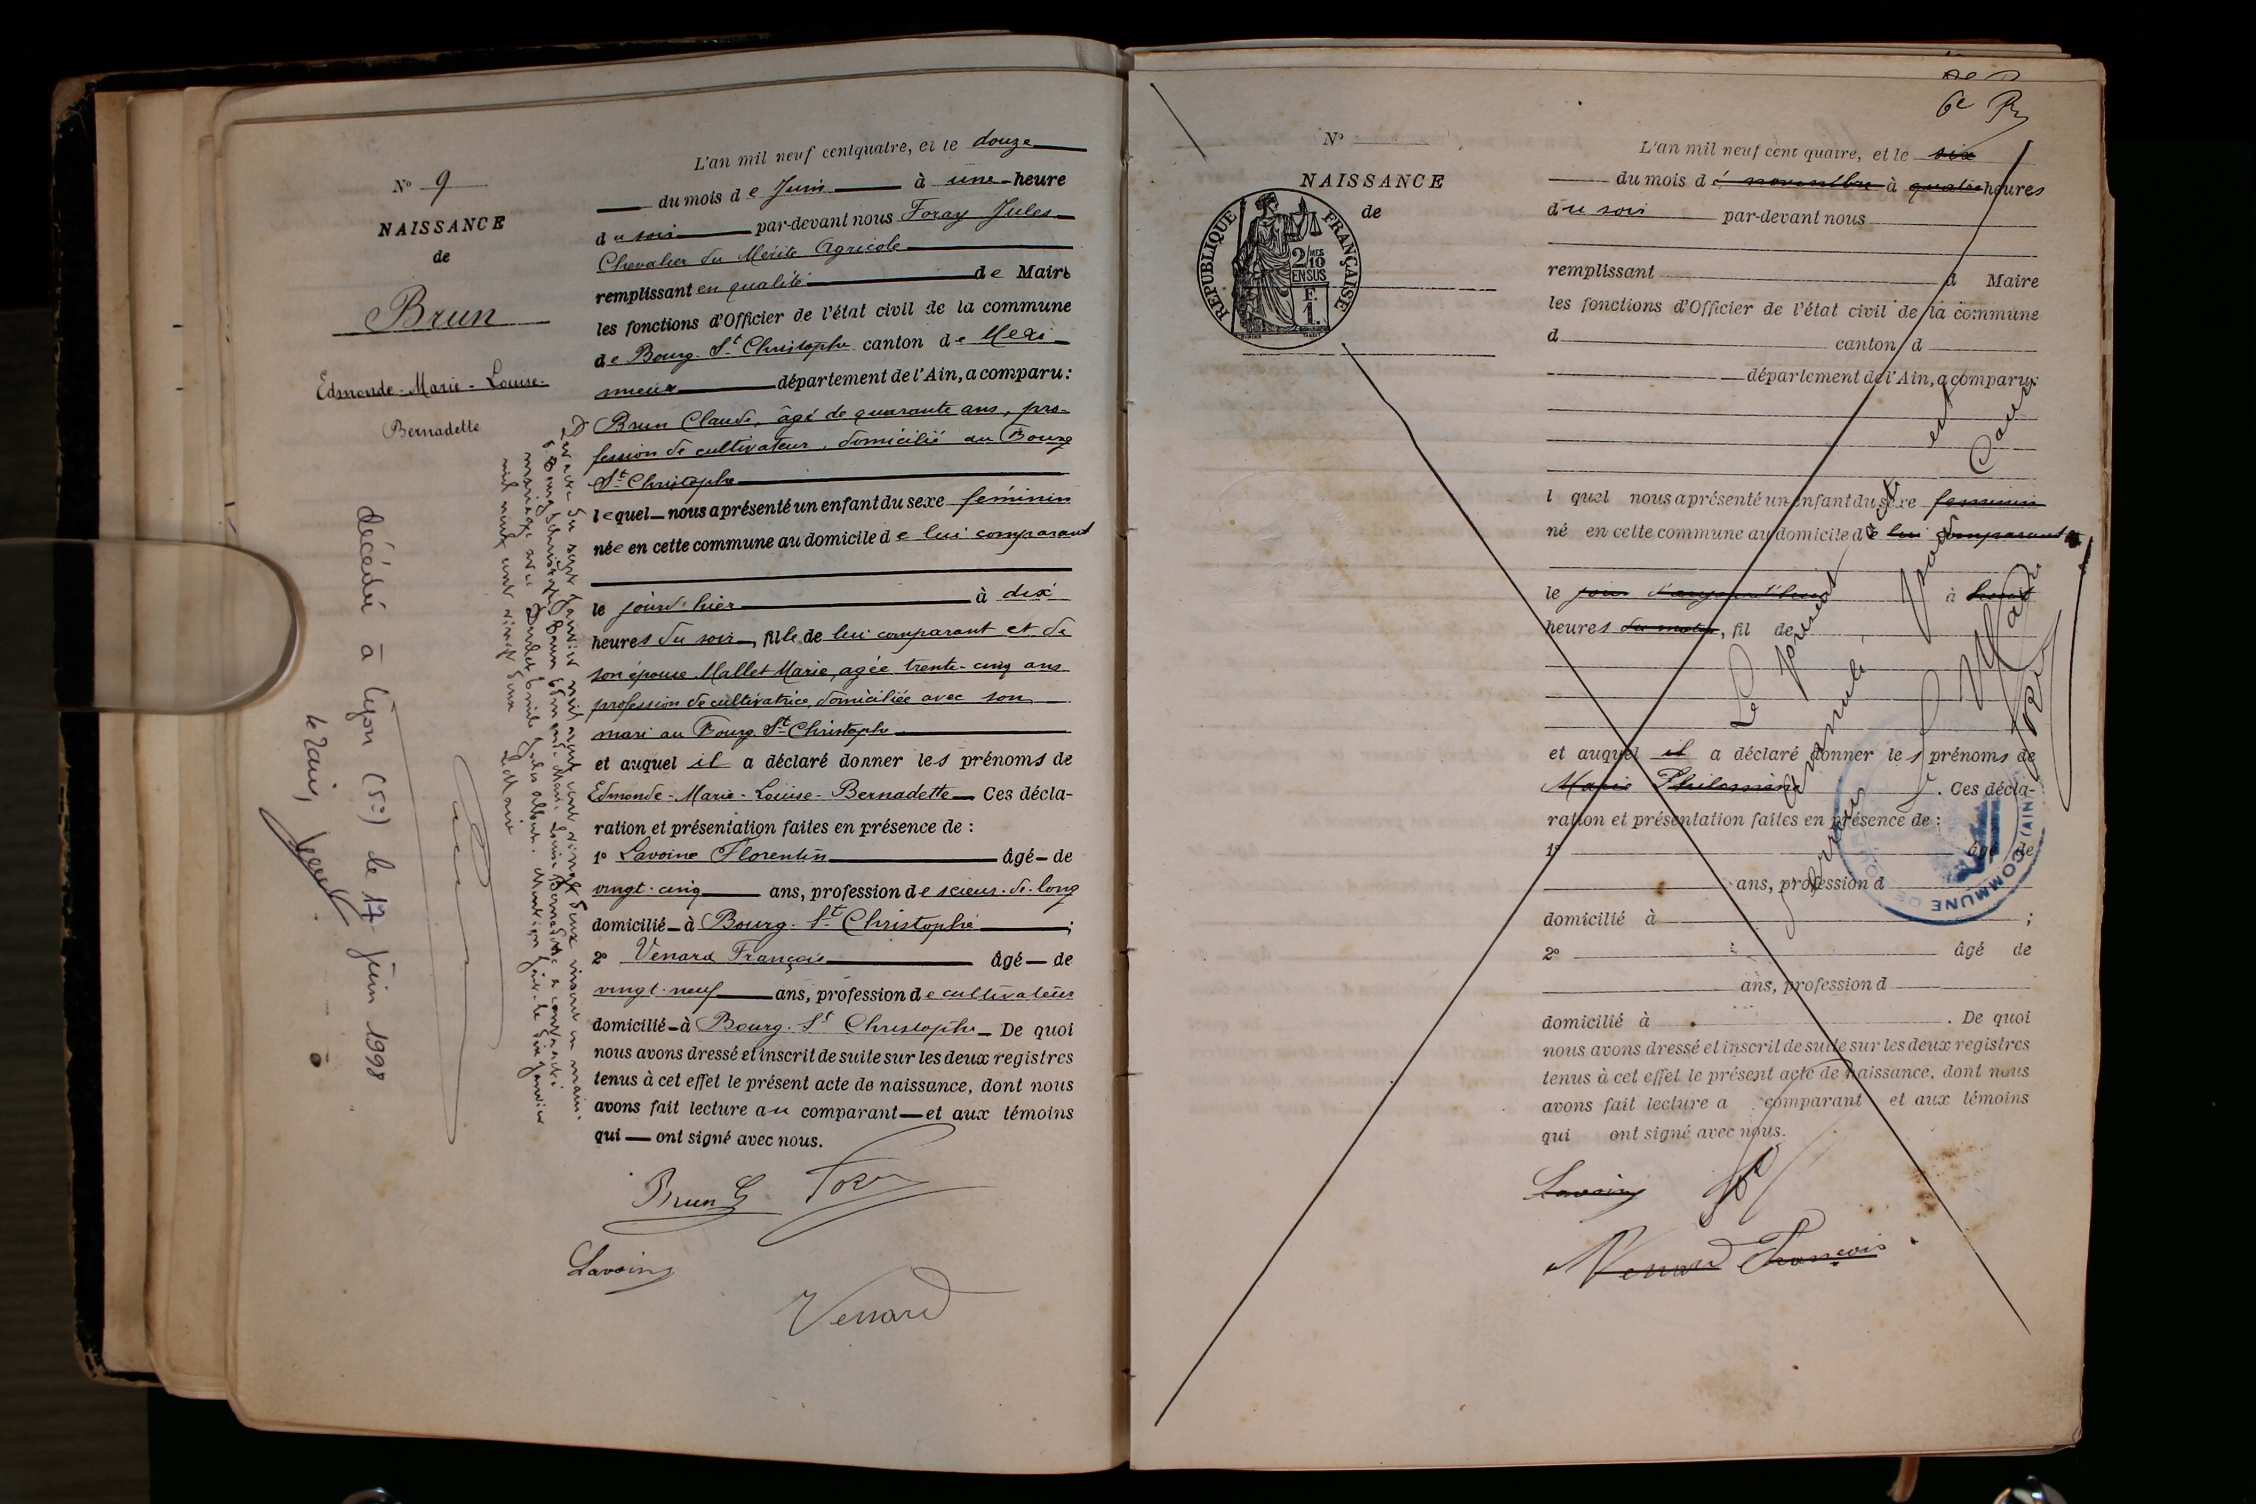 N° 9
NAISSANCE
de
Brun
Edmonde-Marie-Louise-
Bernadette
L'an mil neuf cent quatre, et le douze
du mois de Juin à une heure
du soir par-devant nous Foray Jules
Chevalier du Mérite Agricole
remplissant en qualité de Maire
les fonctions d'Officier de l'état civil de la commune
de Bourg-St-Christophe canton de Mexi-
mieux département de l'Ain, a comparu:
Brun Claude, âgé de quarante ans, pro-
fession de cultivateur, domicilié au Bourg
St-Christophe
lequel nous a présenté un enfant du sexe féminin
née en cette commune au domicile de lui comparant
le jour d'hier à dix
heures du soir, fille de lui comparant et de
son épouse Mallet Marie, agée trente-cinq ans
profession de cultivatrice domiciliée avec son
mari au Bourg St-Christophe
et auquel il a déclaré donner les prénoms de
Edmonde-Marie-Louise-Bernadette Ces décla-
ration et présentation faites en présence de :
1° Lavoine Florentin âgé de
vingt-cinq ans, profession de scieur-de-long
domicilié à Bourg-St-Christophe ;
2° Venard François âgé de
vingt-neuf ans, profession de cultivateur
domicilié à Bourg-St Christophe De quoi
nous avons dressé et inscrit de suite sur les deux registres
tenus à cet effet le présent acte de naissance, dont nous
avons fait lecture au comparant et aux témoins
qui ont signé avec nous.
Brun C
Lavoine
Venard
Par acte du sept janvier mil neuf cent vingt deux inscrit en mairie
de Bourg St Christophe Brun Edmonde Marie Louise Bernadette a contracté
mariage avec Emile Jules Albert. Mention faite le dix janvier
mil neuf cent vingt deux Le Maire
décédée à Lyon (5e) le 17 juin 1998
le Maire,
N°
NAISSANCE
de
RÉPUBLIQUE FRANÇAISE
2/10
EN SUS
F.
1.
L'an mil neuf cent quatre, et le six
du mois de novembre à quatre heures
du soir par-devant nous
remplissant d Maire
les fonctions d'Officier de l'état civil de la commune
d canton d
département de l'Ain, a comparu:
l quel nous a présenté un enfant du sexe feminin
né en cette commune au domicile de lui comparant
le jour d'aujourd'hui à huit
heures du matin, fil de
et auquel il a déclaré donner les prénoms de
Marie Philomène. Ces décla-
ration et présentation faites en présence de :
1° âgé de
ans, profession d
domicilié à ;
2° âgé de
ans, profession d
domicilié à . De quoi
nous avons dressé et inscrit de suite sur les deux registres
tenus à cet effet le présent acte de naissance, dont nous
avons fait lecture a comparant et aux témoins
qui ont signé avec nous.
Lavoine
Venard François
Le présent acte est
annulé pour cause
Le Maire
COMMUNE DE
(AIN)